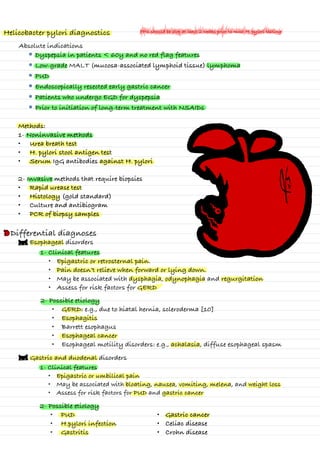 Helicobacter pylori diagnostics
PPIs should be stop at least 2 weeks prior to most H. pylori testing
Absolute indications
* Dyspepsia in patients < 60y and no red flag features
* Low grade MALT (mucosa-associated lymphoid tissue) lymphoma
* PUD
* Endoscopically resected early gastric cancer
* Patients who undergo EGD for dyspepsia
* Prior to initiation of long-term treatment with NSAIDs
Methods:
1- Noninvasive methods
• Urea breath test
• H. pylori stool antigen test
• Serum IgG antibodies against H. pylori
2- Invasive methods that require biopsies
• Rapid urease test
• Histology (gold standard)
• Culture and antibiogram
• PCR of biopsy samples
Differential diagnoses
Esophageal disorders
1- Clinical features
• Epigastric or retrosternal pain.
• Pain doesn't relieve when forward or lying down.
• May be associated with dysphagia, odynophagia and regurgitation
• Assess for risk factors for GERD
2- Possible etiology
• GERD: e.g., due to hiatal hernia, scleroderma [10]
• Esophagitis
• Barrett esophagus
• Esophageal cancer
• Esophageal motility disorders: e.g., achalasia, diffuse esophageal spasm
Gastric and duodenal disorders
1- Clinical features
• Epigastric or umbilical pain
• May be associated with bloating, nausea, vomiting, melena, and weight loss
• Assess for risk factors for PUD and gastric cancer
2- Possible etiology
• PUD
• H.pylori infection
• Gastritis
• Gastric cancer
• Celiac disease
• Crohn disease